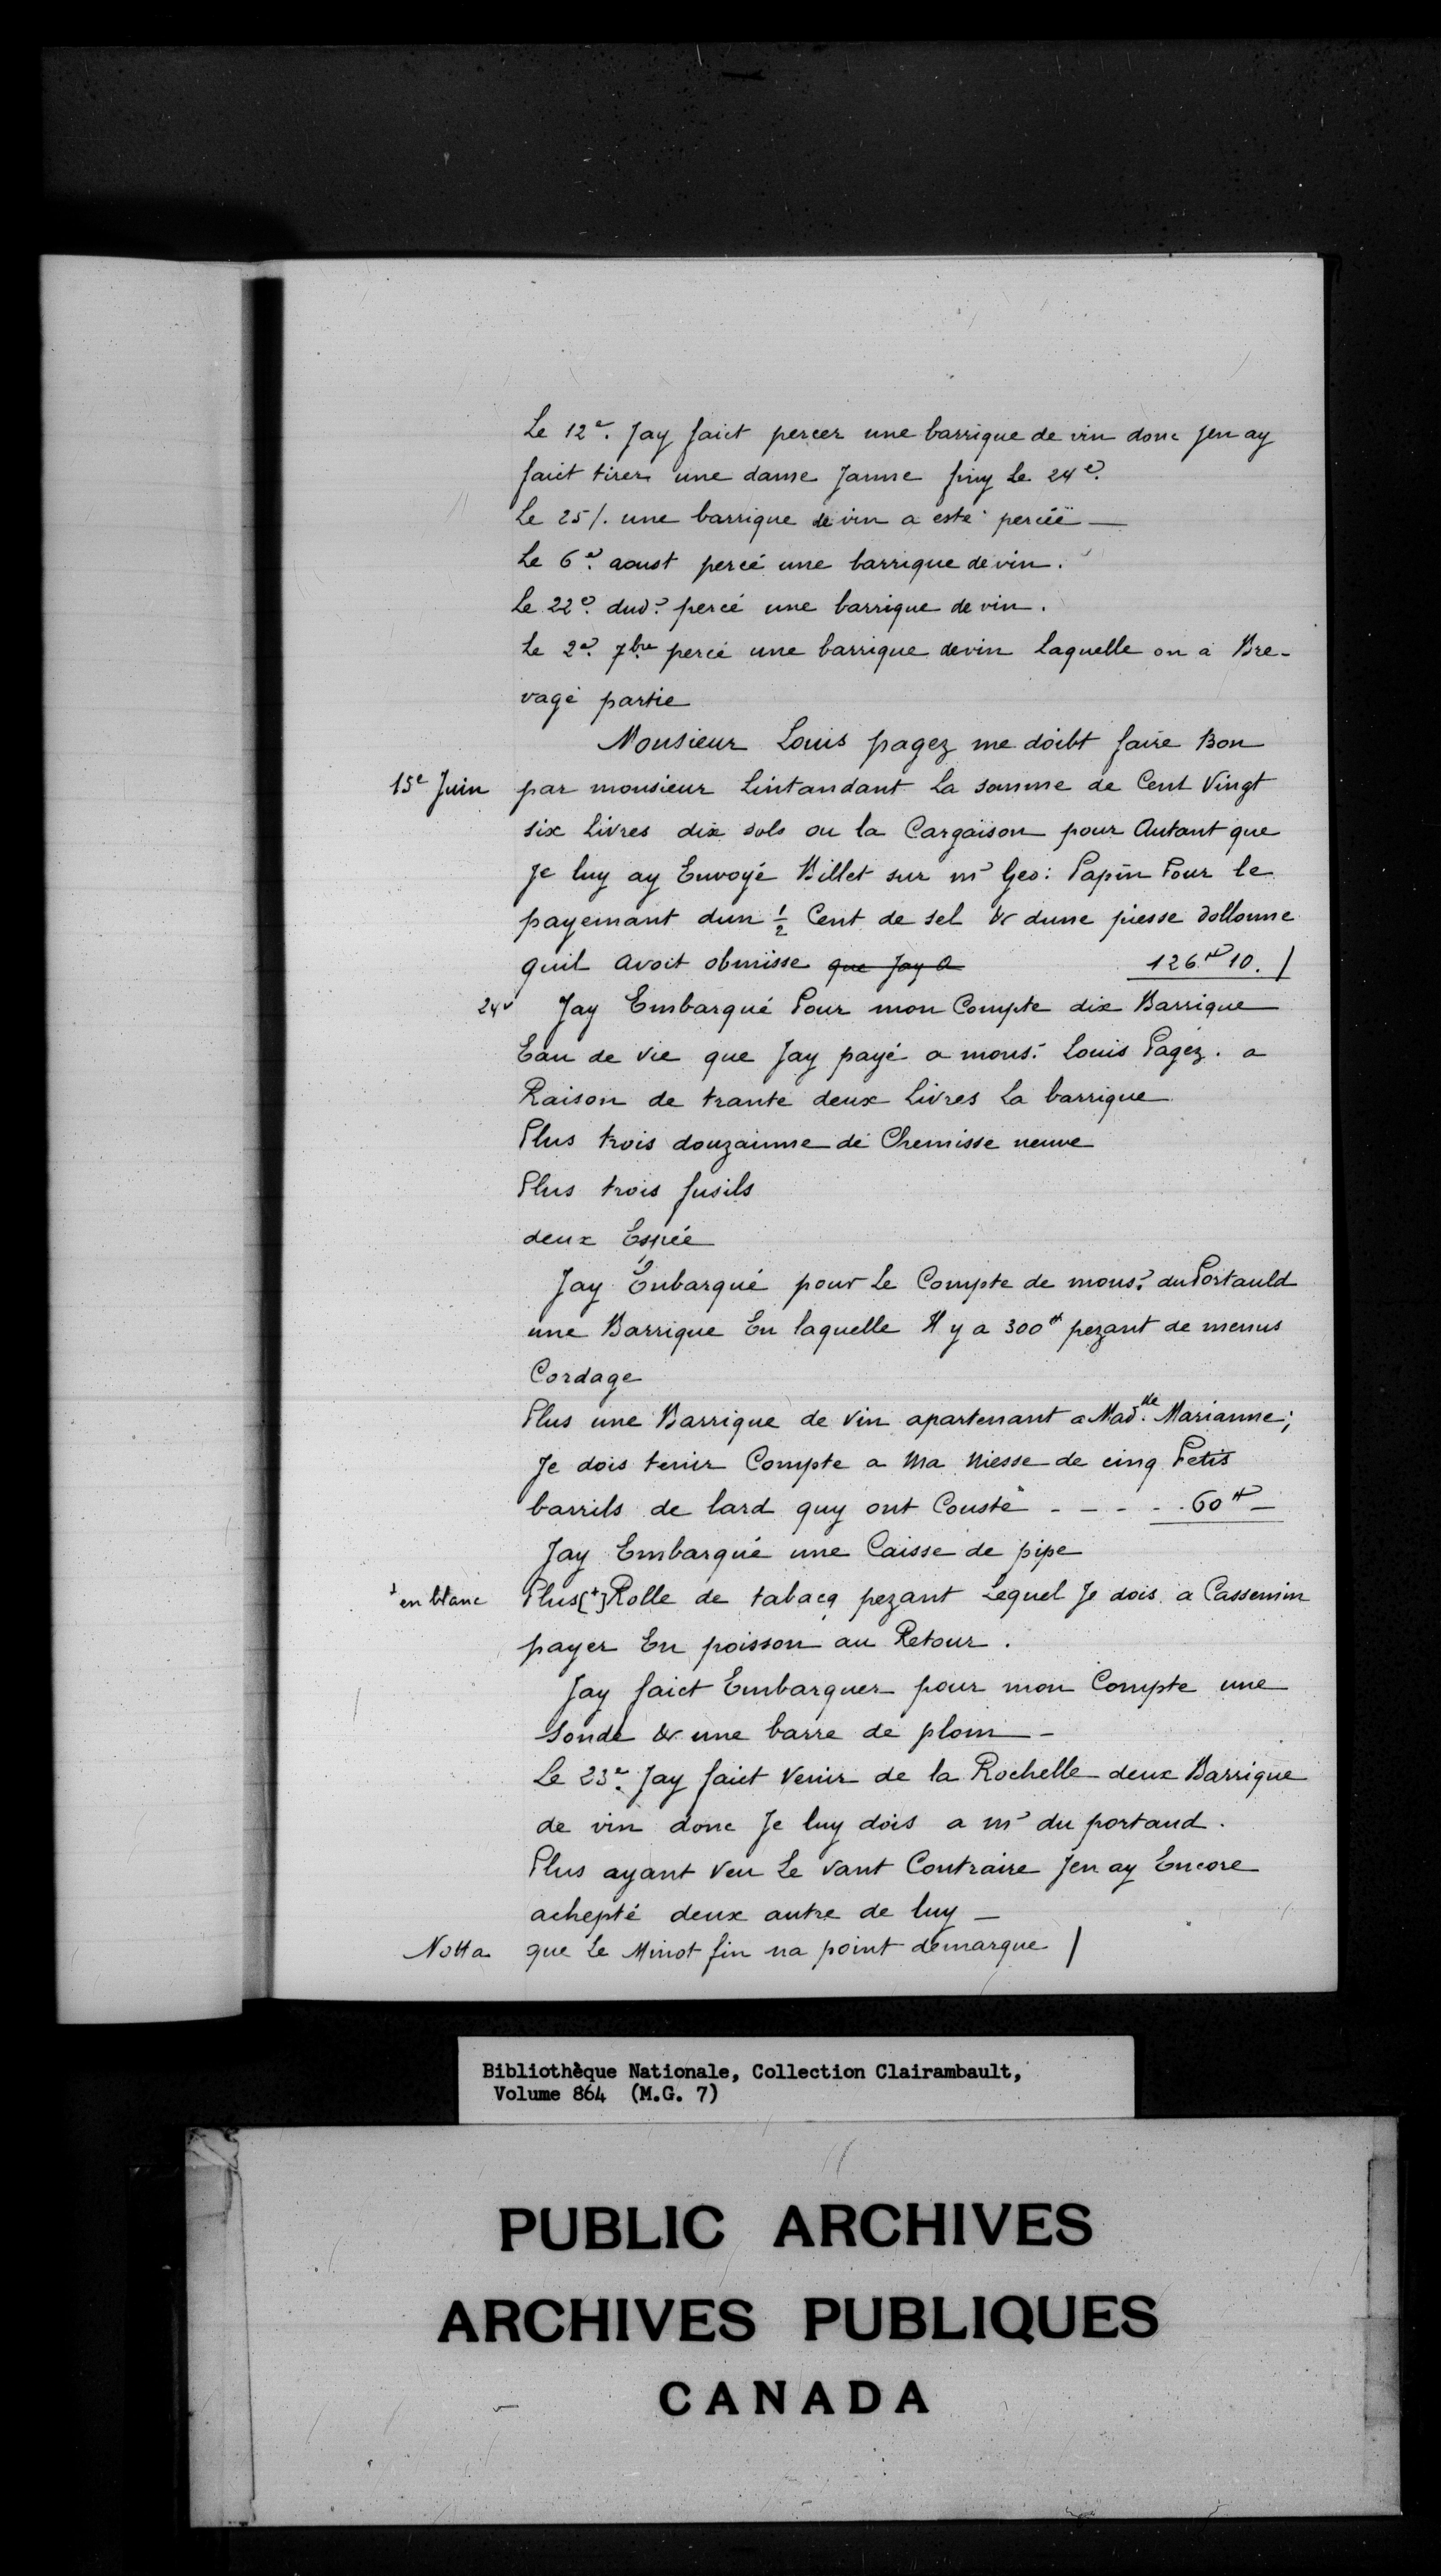 Le 12e. Jay faict percer une barrique de vin donc jen ay
faict tirer une dame Janne finy Le 24e.
Le 25/. une barrique de vin a esté percéë —
Le 6e. aoust percé une barrique de vin.
Le 22e. dud? percé une barrique de vin.
Le 2e. 7bre percé une barrique devin Laquelle on a Bre-
vagé partie
Monsieur Louis pagez me doibt faire Bon
15e Juin par monsieur Lintandant La somme de Cent Vingt
six Livres dix sols ou la Cargaison pour Autant que
Je luy ay Envoyé Billet sur mr Geo: Papin Pour le
payemant dun ½ Cent de sel & dune piesse dollonne
quil avoit obmisse que Jay a 126tt 10. /
24e Jay Embarqué Pour mon Compte dix Barrique
Eau de vie que Jay payé a monsr. Louis Pagéz. a
Raison de trante deux Livres La barrique
Plus trois douzainne de Chemisse neuve
Plus trois fusils
deux Espée
Jay Enbarqué pour Le Compte de monsr. du Portauld
une Barrique En laquelle Il y a 300tt pezant de menus
Cordage
Plus une Barrique de vin apartenant a Mad.lle Marianne;
Je dois tenir Compte a Ma Niesse de cinq Petis
barrils de lard quy ont Cousté - - - - 60tt —
Jay Embarqué une Caisse de pipe
+ en blanc Plus [+] Rolle de tabacq pezant Lequel Je dois a Cassemin
payer En poisson au Retour.
Jay faict Embarquer pour mon Compte une
Sonde & une barre de plom —
Le 23e. Jay faict Venir de la Rochelle deux Barrique
de vin donc Je luy dois a mr du portaud.
Plus ayant veu Le vant Contraire Jen ay Encore
achepté deux autre de luy —
Notta que Le Minot fin na point démarque /
Bibliothèque Nationale, Collection Clairambault,
Volume 864 (M.G. 7)
PUBLIC ARCHIVES
ARCHIVES PUBLIQUES
CANADA